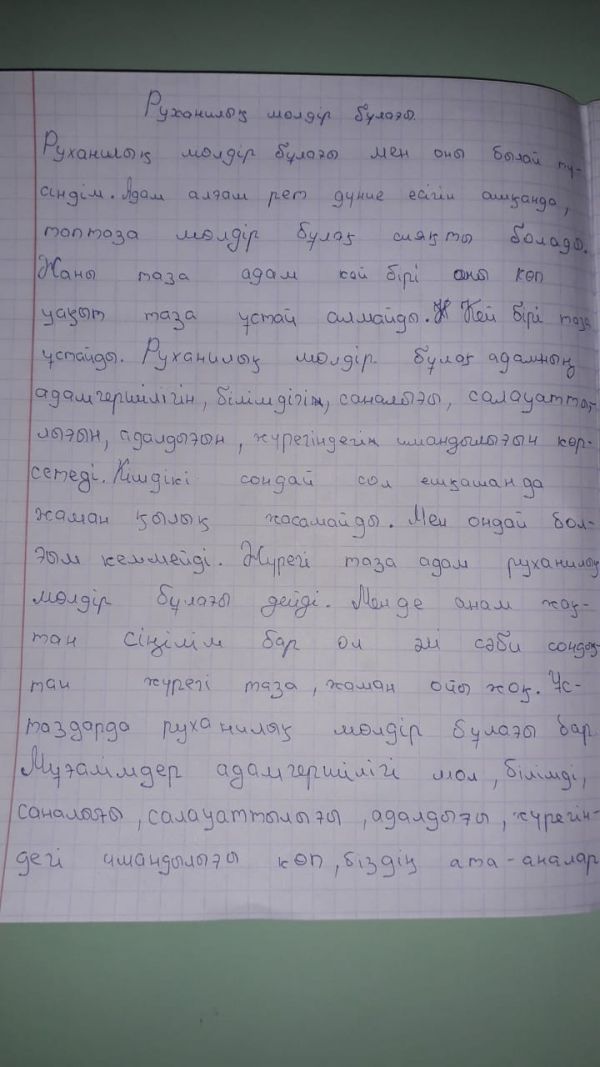 Руханилық мөлдір бұлағы.
Руханилық мөлдір бұлағы мен оны былай тү-
сіндім. Адам алғам рет дүние есігін ашқанда,
таптаза мөлдір бұлақ сияқты болады.
Жаны таза адам кей бірі оны көп
уақыт таза ұстай алмайды. Кей бірі таза
ұстайды. Руханилық мөлдір бұлақ адамның
адамгершілігін, білімдігін, саналығы, салауатты-
лығын, адалдығын, жүрегіндегін имандылығын көр-
сетеді. Кімдікі сондай сол ешқашанда
жаман қылық жасамайды. Мен ондай бол-
ғым келмейді. Жүрегі таза адам руханилық
мөлдір бұлағы дейді. Менде анам жақ-
тан сіңілім бар ол әлі сәби сондық-
тан жүрегі таза, жаман ойы жоқ. Ұс-
таздарда руханилық мөлдір бұлағы бар
Мұғалімдер адамгершілігі мол, білімді,
саналығы, салауаттылығы, адалдығы, жүрегін-
дегі имандылығы көп, біздің ата-аналар